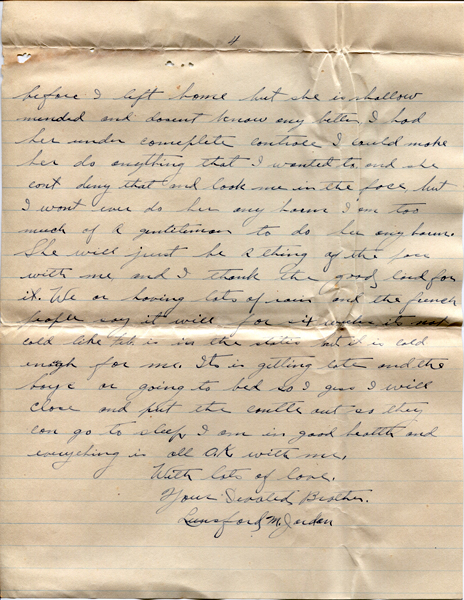 4
before I left home but she is shallow
minded and doesnt know any better I had
her under complete controle I could make
her do anything that I wanted to and she
cont deny that and look me in the face but
I wont ever do her any harm I am too
much of a gentleman to do her any harm.
She will just be a thing of the pas
with me and I thank the good lord for
it. We or having lots of rain and the french
people say it will for it its not
cold like it is in the states but it is cold
enough for me. Its is getting late and the
boys or going to bed so I gess I will
close and put the candle out so they
can go to sleep I am in good health and
everything is all OK with me.
With lots of love.
Your Devoted Brother.
Lunsford M. Jordan